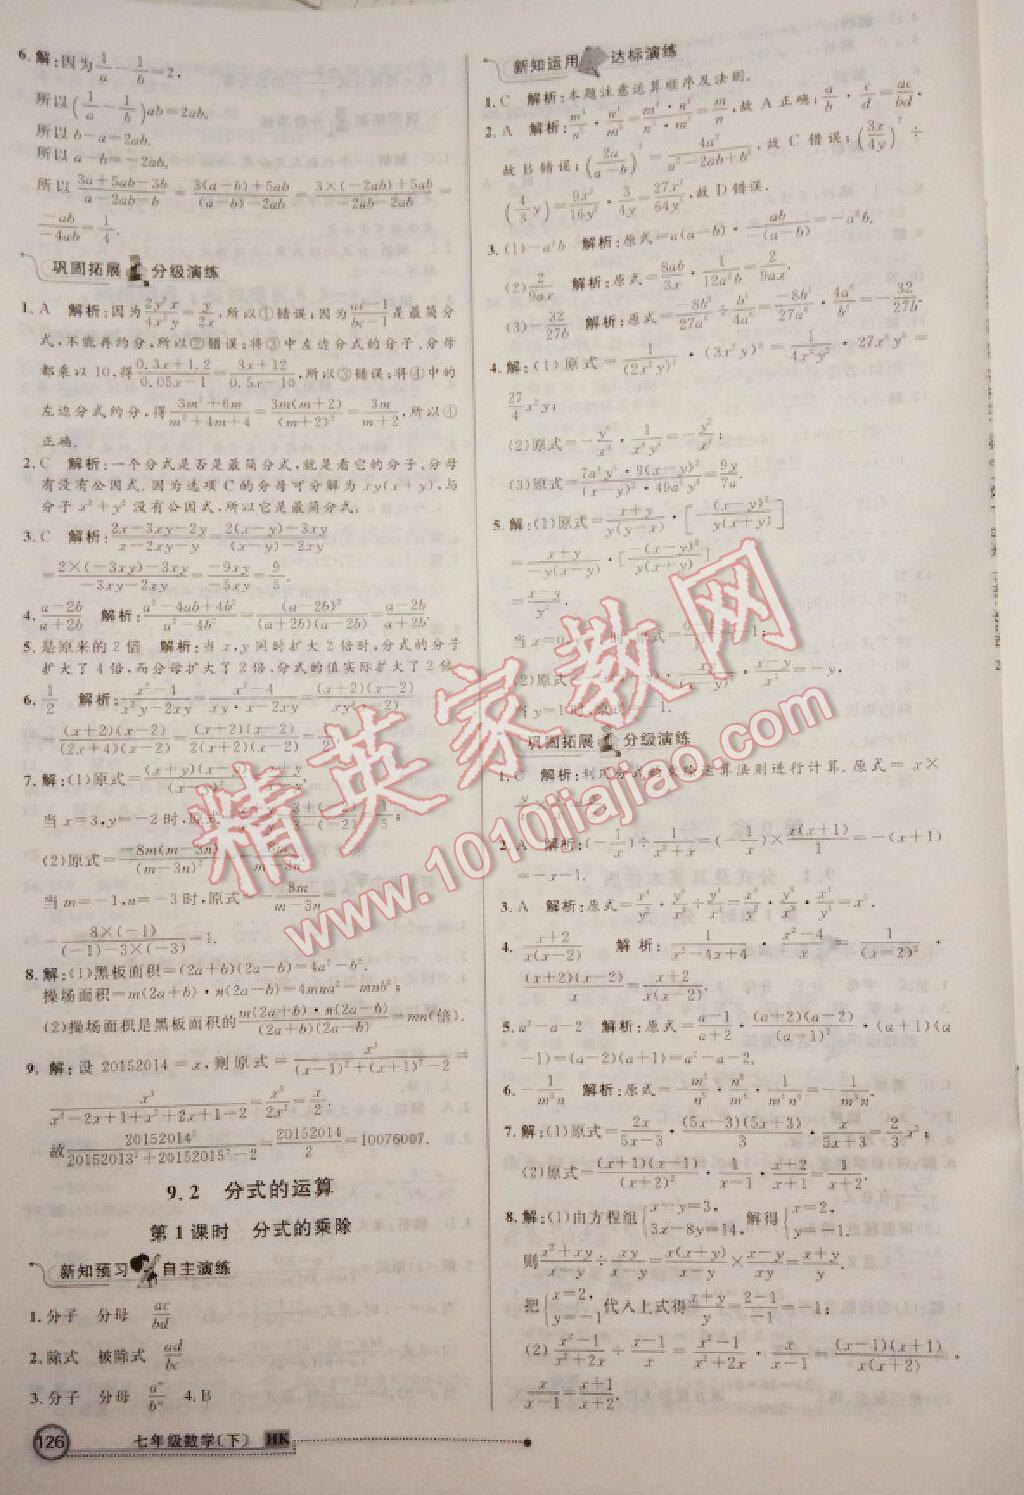 6. 解:因为1/a-1/b=2,
所以(1/a-1/b)ab=2ab,
所以b-a=2ab,
所以a-b=-2ab,
所以(3a+5ab-3b)/(a-2ab-b)=(3(a-b)+5ab)/((a-b)-2ab)=(3×(-2ab)+5ab)/(-2ab-2ab)=
(-ab)/(-4ab)=1/4.
巩固拓展 分级演练
1. A 解析:因为2y²x/4x²y=y/2x,所以①错误;因为(ac-1)/(bc-1)是最简分
式,不能再约分,所以②错误;将③中左边分式的分子、分母
都乘以10,得(0.3x+1.2)/(0.05x-1)=(3x+12)/(0.5x-10),所以③错误;将④中的
左边分式约分,得(3m²+6m)/(m²+4m+4)=3m(m+2)/(m+2)²=3m/(m+2),所以④
正确.
2. C 解析:一个分式是否是最简分式,就是看它的分子、分母
有没有公因式.因为选项C的分母可分解为xy(x+y),与
分子x²+y²没有公因式,所以它是最简分式.
3. C 解析:(2x-3xy-2y)/(x-2xy-y)=(2(x-y)-3xy)/((x-y)-2xy)
=(2×(-3xy)-3xy)/(-3xy-2xy)=-9xy/-5xy=9/5.
4. (a-2b)/(a+2b) 解析:(a²-4ab+4b²)/(a²-4b²)=(a-2b)²/((a+2b)(a-2b))=(a-2b)/(a+2b).
5. 是原来的2倍 解析:当x,y同时扩大2倍时,分式的分子
扩大了4倍,而分母扩大了2倍,分式的值实际扩大了2倍.
6. 1/2 解析:(x²-4)/(x²y-2xy)=(x²-4)/(xy·x-2xy)=(x+2)(x-2)/xy(x-2)
=(x+2)(x-2)/((2x+4)(x-2))=(x+2)(x-2)/(2(x+2)(x-2))=1/2
7. 解:(1)原式=
当x=3,y=-2时,原式
(2)原式=-8m(m-3n)/(m-3n)²
当m=-1,n=-3时,原式=-8m/(m-3n)=
-8×(-1)/((-1)-3×(-3))=1.
8. 解:(1)黑板面积=(2a+b)(2a-b)=4a²-b².
操场面积=m(2a+b)·n(2a-b)=4mna²-mnb²;
(2)操场面积是黑板面积的(m(2a+b)·n(2a-b))/((2a+b)(2a-b))=mn(倍).
9. 解:设20152014=x,则原式=x³/((x-1)²+(x+1)²-2)=
x³/(x²-2x+1+x²+2x+1-2)=x³/2x²=x/2.
故20152014³/(20152013²+20152015²-2)=20152014/2=10076007.
9.2 分式的运算
第1课时 分式的乘除
新知预习 自主演练
1. 分子 分母 ac/bd
2. 除式 被除式 ad/bc
3. 分子 分母 aⁿ/bⁿ 4. B
126 七年级数学(下) HK
新知运用 达标演练
1. C 解析:本题注意运算顺序及法则.
2. A 解析:
,故A正确;a/b·c/d=ac/bd,
故B错误;(2a/(a-b))²=4a²/(a²-2ab+b²),故C错误;(3x/4y)²÷
,故D错误.
3. (1)-a²b 解析:原式=a(a-b)·ab/-(a-b)=-a²b.
(2)2/9ax 解析:原式=8ab/3x·1/12a²b=2/9ax.
(3)-32/27b 解析:原式=
4. 解:(1)原式=
27/4 x²y;
(2)原式=
(3)原式=(7a³y³·9(x-y)²)/((x-y)²·49a⁴y²)=9y/7a.
5. 解:(1)原式=(x+y)/(y(y-x))·[-(x-y)²/(y(x+y))]
=(x+y)/(-y(x-y))·[-(x-y)²/(y(x+y))]
=(x-y)/y².
(2)原式=
当y=1时,原式=-1.
巩固拓展 分级演练
1. C 解析:利用分式的乘除运算法则进行计算.原式=x×
2. A 解析:(-1/x)÷1/(x²+x)=(-1/x)×x(x+1)/1=-(x+1)
=-x-1.
3. A 解析:原式=
4. (x+2)/(x(x-2)) 解析:1/(x²-4x+4)·(x²-4)/x=1/(x-2)²·
(x+2)(x-2)/x=(x+2)/(x(x-2)).
5. a²-a-2 解析:原式=(a-1)/(a+2)·(a+2)(a-2)/(a-1)²·(a+1)(a
-1)=(a-2)(a+1)=a²-a-2.
6. 解析:原式=
7. 解:(1)原式=2x/(5x-3)·(5x-3)(5x+3)/3·x/(5x+3)=2/3 x²;
(2)原式=(x+1)(x-1)/(x+2)²·1/(x-1)·(x+2)/(x+1)=1/(x+2).
8. 解:(1)由方程组{x-y=3, 3x-8y=14, 解得{x=2, y=-1.
则(x²+xy)/(x-y)÷xy/(x-y)=x(x+y)/(x-y)×(x-y)/xy=(x+y)/y.
把{x=2, y=-1代入上式得(x+y)/y=(2-1)/-1=-1;
(2)(x²-1)/(x²+2x)÷(x-1)/x=(x²-1)/(x²+2x)·x/(x-1)=(x-1)(x+1)/(x(x+2))·
x/(x-1)=(x+1)/(x+2).
精英家教网
www.1010jiajiao.com